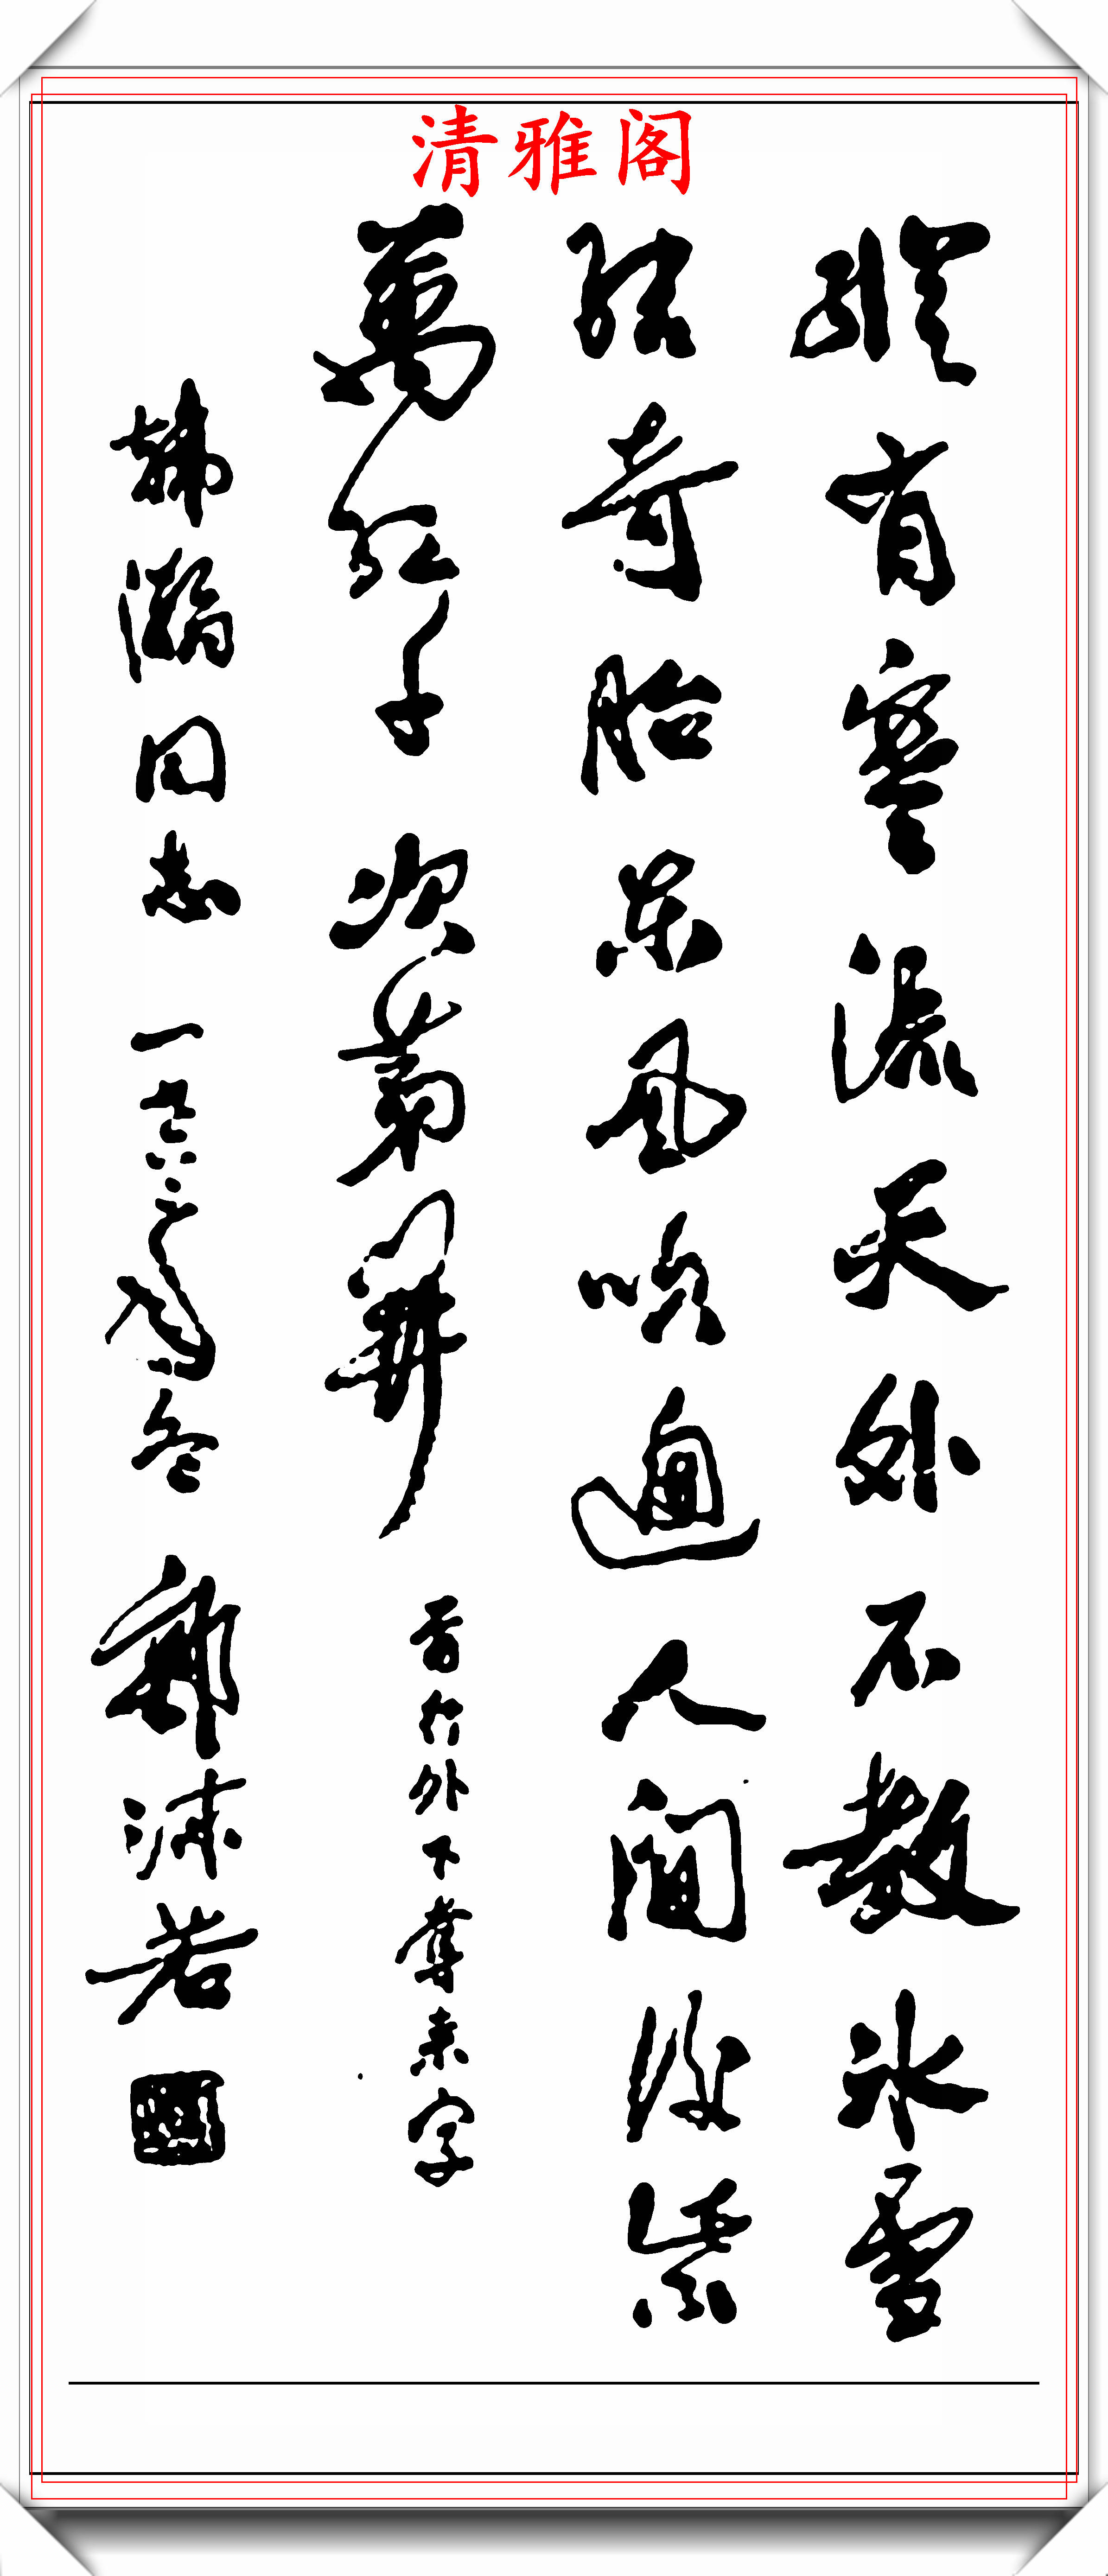 清雅阁
縱有寒流天外不教冰雪
結奇胎東風吹遍人間後紫
萬紅千次第開 首行外下奪来字
韩瀚同志 一九六二年冬 郭沫若